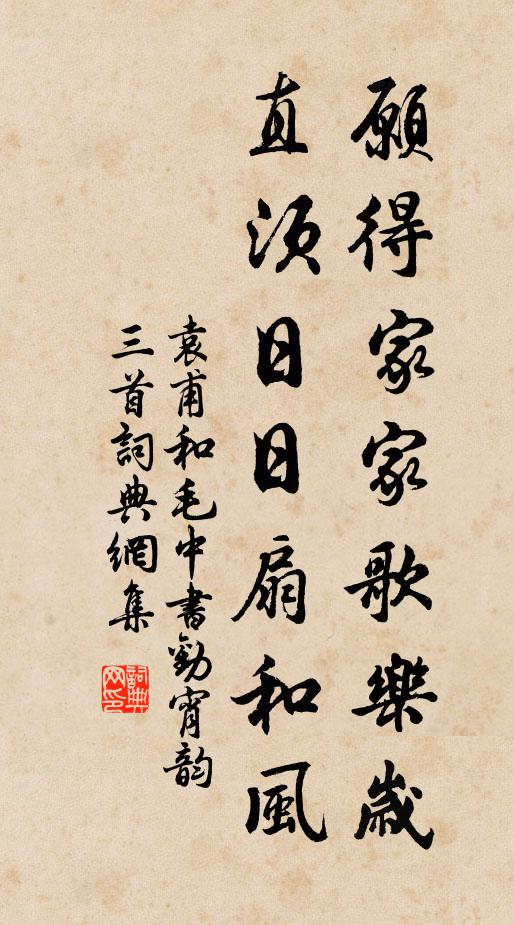 願得家家歌樂歲
直須日日扇和風
袁甫和毛中書勸宵韵
三首詞典網集
詞典网印